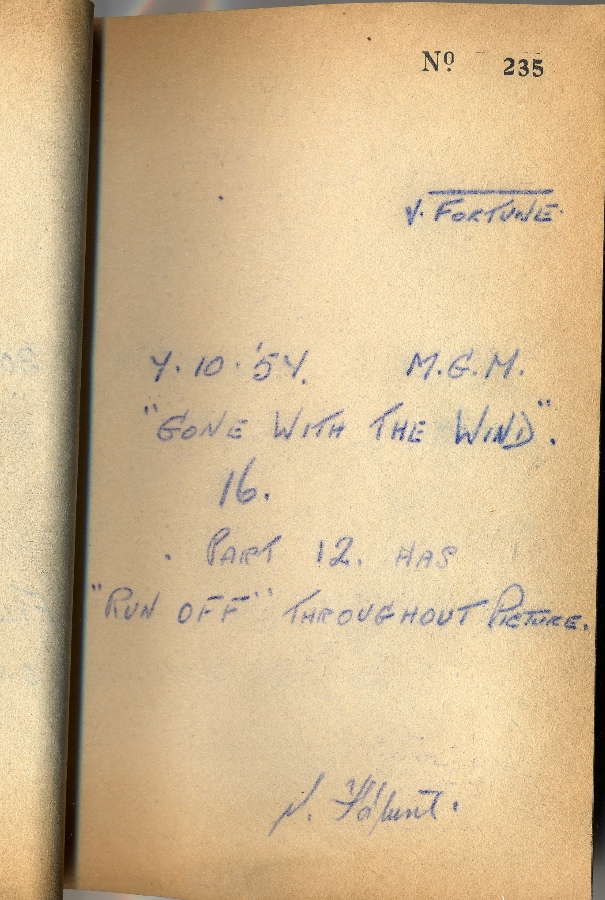 Nº 235
V. FORTUNE.
4. 10. '54. M.G.M.
"GONE WITH THE WIND".
16.
. PART 12. HAS
"RUN OFF" THROUGHOUT PICTURE.